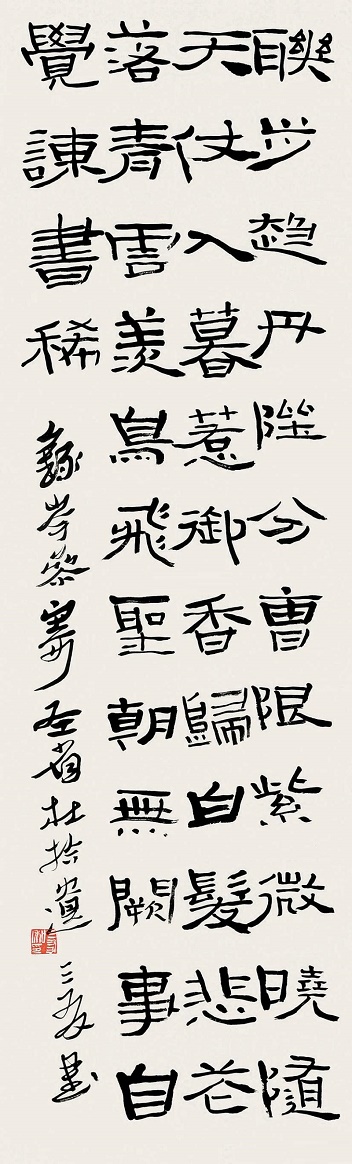 聯步趨丹陛分曹限紫微曉隨
天仗入暮惹御香歸白髮悲花
落青雲羨鳥飛聖朝無闕事自
覺諫書稀
錄岑參寄左省杜拾遺